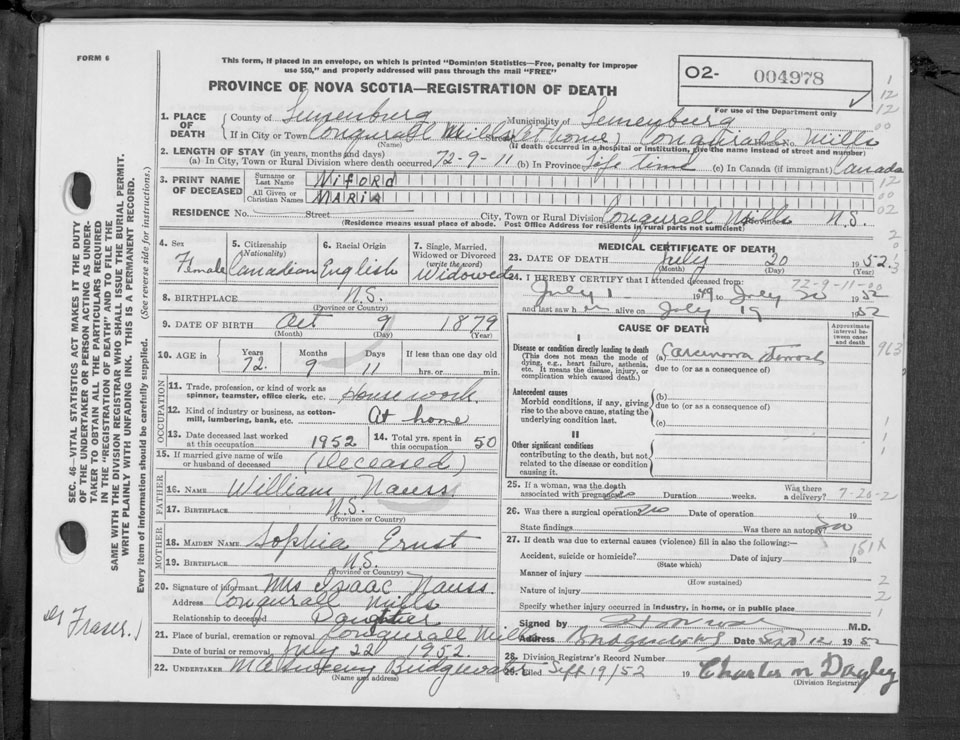 FORM 6
This form, if placed in an envelope, on which is printed "Dominion Statistics—Free, penalty for improper
use $50," and properly addressed will pass through the mail "FREE"
PROVINCE OF NOVA SCOTIA—REGISTRATION OF DEATH
O2- 004978
For use of the Department only
1. PLACE OF DEATH
County of Lunenburg Municipality of Lunenburg
If in City or Town Conqurall Mills Street (at home) Conqurall Mills
(Name) (If death occurred in a hospital or institution, give the name instead of street and number)
2. LENGTH OF STAY (in years, months and days)
(a) In City, Town or Rural Division where death occurred 72-9-11 (b) In Province Life time (c) In Canada (if immigrant) Canada
3. PRINT NAME OF DECEASED
Surname or Last Name Miford
All Given or Christian Names Maria
RESIDENCE No. Street City, Town or Rural Division Conqurall Mills Province N.S.
(Residence means usual place of abode. Post Office Address for residents in rural parts not sufficient)
4. Sex Female
5. Citizenship (Nationality) Canadian
6. Racial Origin English
7. Single, Married, Widowed or Divorced (write the word) Widowed
8. BIRTHPLACE N.S.
(Province or Country)
9. DATE OF BIRTH Oct 9 1879
(Month) (Day) (Year)
10. AGE in Years 72 Months 9 Days 11 If less than one day old
hrs. or min.
OCCUPATION
11. Trade, profession, or kind of work as
spinner, teamster, office clerk, etc. House work.
12. Kind of industry or business, as cotton-
mill, lumbering, bank, etc. At home
13. Date deceased last worked
at this occupation 1952
14. Total yrs. spent in
this occupation 50
15. If married give name of wife
or husband of deceased (Deceased)
FATHER
16. NAME William Nauss.
17. BIRTHPLACE N.S.
(Province or Country)
MOTHER
18. MAIDEN NAME Sophia Ernst
19. BIRTHPLACE N.S.
(Province or Country)
20. Signature of informant Mrs Isaac Nauss.
Address Conqurall Mills
Relationship to deceased Daughter
21. Place of burial, cremation or removal Conqurall Mills
Date of burial or removal July 22 1952.
22. UNDERTAKER Bridgewater
(Name and address)
MEDICAL CERTIFICATE OF DEATH
23. DATE OF DEATH July 20 1952.
(Month) (Day) (Year)
24. I HEREBY CERTIFY that I attended deceased from:
72-9-11-00
July 1 1949 to July 20 1952
and last saw h er alive on July 19 1952
CAUSE OF DEATH
Approximate interval between onset and death
I
Disease or condition directly leading to death
(This does not mean the mode of
dying, e.g., heart failure, asthenia,
etc. It means the disease, injury, or
complication which caused death.)
(a) Carcinoma Stomach
due to (or as a consequence of)
963
Antecedent causes
Morbid conditions, if any, giving
rise to the above cause, stating the
underlying condition last.
(b)
due to (or as a consequence of)
(c)
II
Other significant conditions
contributing to the death, but not
related to the disease or condition
causing it.
25. If a woman, was the death
associated with pregnancy no Duration weeks. Was there
a delivery? 7-20-2
26. Was there a surgical operation? no Date of operation 19
State findings Was there an autopsy? no
27. If death was due to external causes (violence) fill in also the following:—
151X
Accident, suicide or homicide? Date of injury 19
(State which)
Manner of injury
(How sustained)
Nature of injury
Specify whether injury occurred in industry, in home, or in public place
Signed by M.D.
Address Bridgewater N.S. Date Sept 12 1952
28. Division Registrar's Record Number
29. Filed Sept 19/52 19 Charles M Dagley
(Division Registrar)
SEC. 46—VITAL STATISTICS ACT MAKES IT THE DUTY
OF THE UNDERTAKER OR PERSON ACTING AS UNDER-
TAKER TO OBTAIN ALL THE PARTICULARS REQUIRED
IN THE "REGISTRATION OF DEATH" AND TO FILE THE
SAME WITH THE DIVISION REGISTRAR WHO SHALL ISSUE THE BURIAL PERMIT.
WRITE PLAINLY WITH UNFADING INK. THIS IS A PERMANENT RECORD.
Every item of information should be carefully supplied. (See reverse side for instructions.)
Dr Fraser.